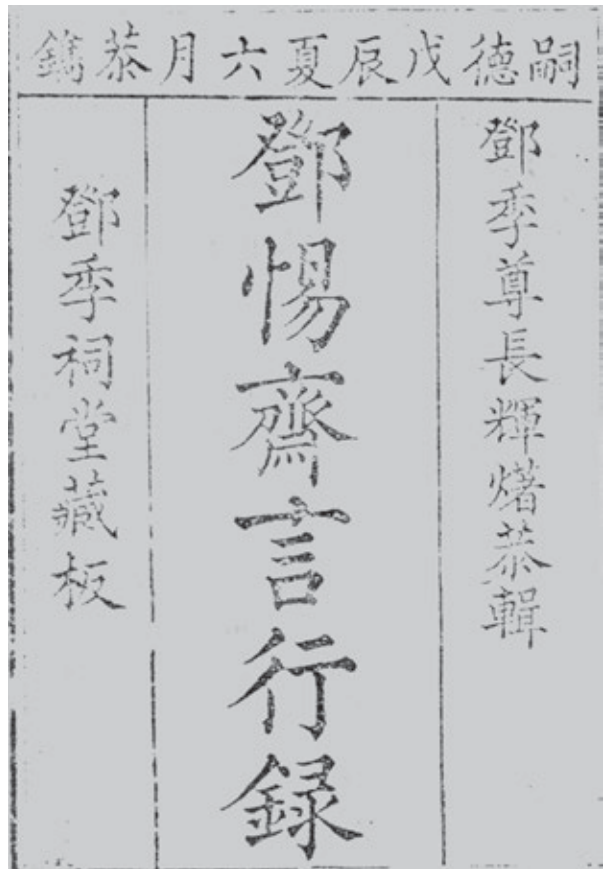 嗣德戊辰夏六月恭鐫
鄧季尊長輝𤏸恭輯
鄧惕齋言行録
鄧季祠堂藏板